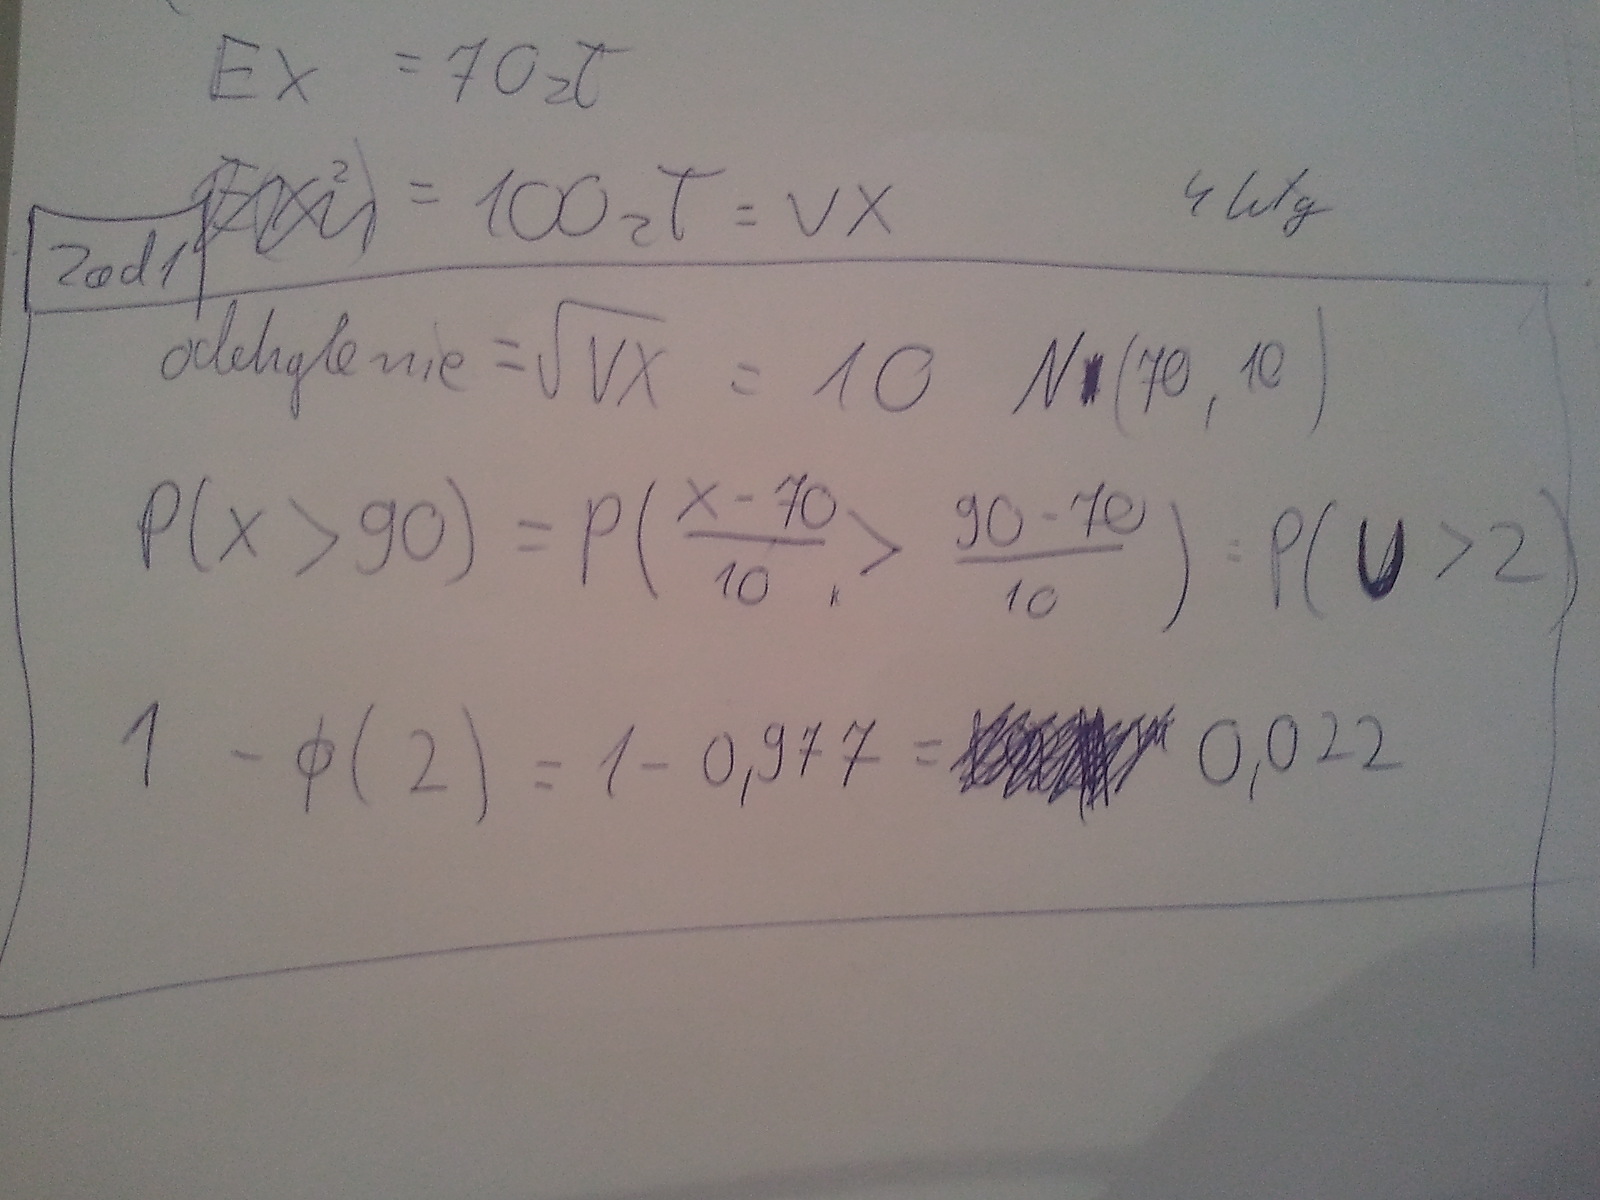 EX = 70 zł
= 100 zł = VX
Zad 1
odchylenie = √VX = 10 N(70, 10)
P(X > 90) = P(\frac{X - 70}{10} > \frac{90 - 70}{10}) = P(U > 2)
1 - ϕ(2) = 1 - 0,977 = 0,022